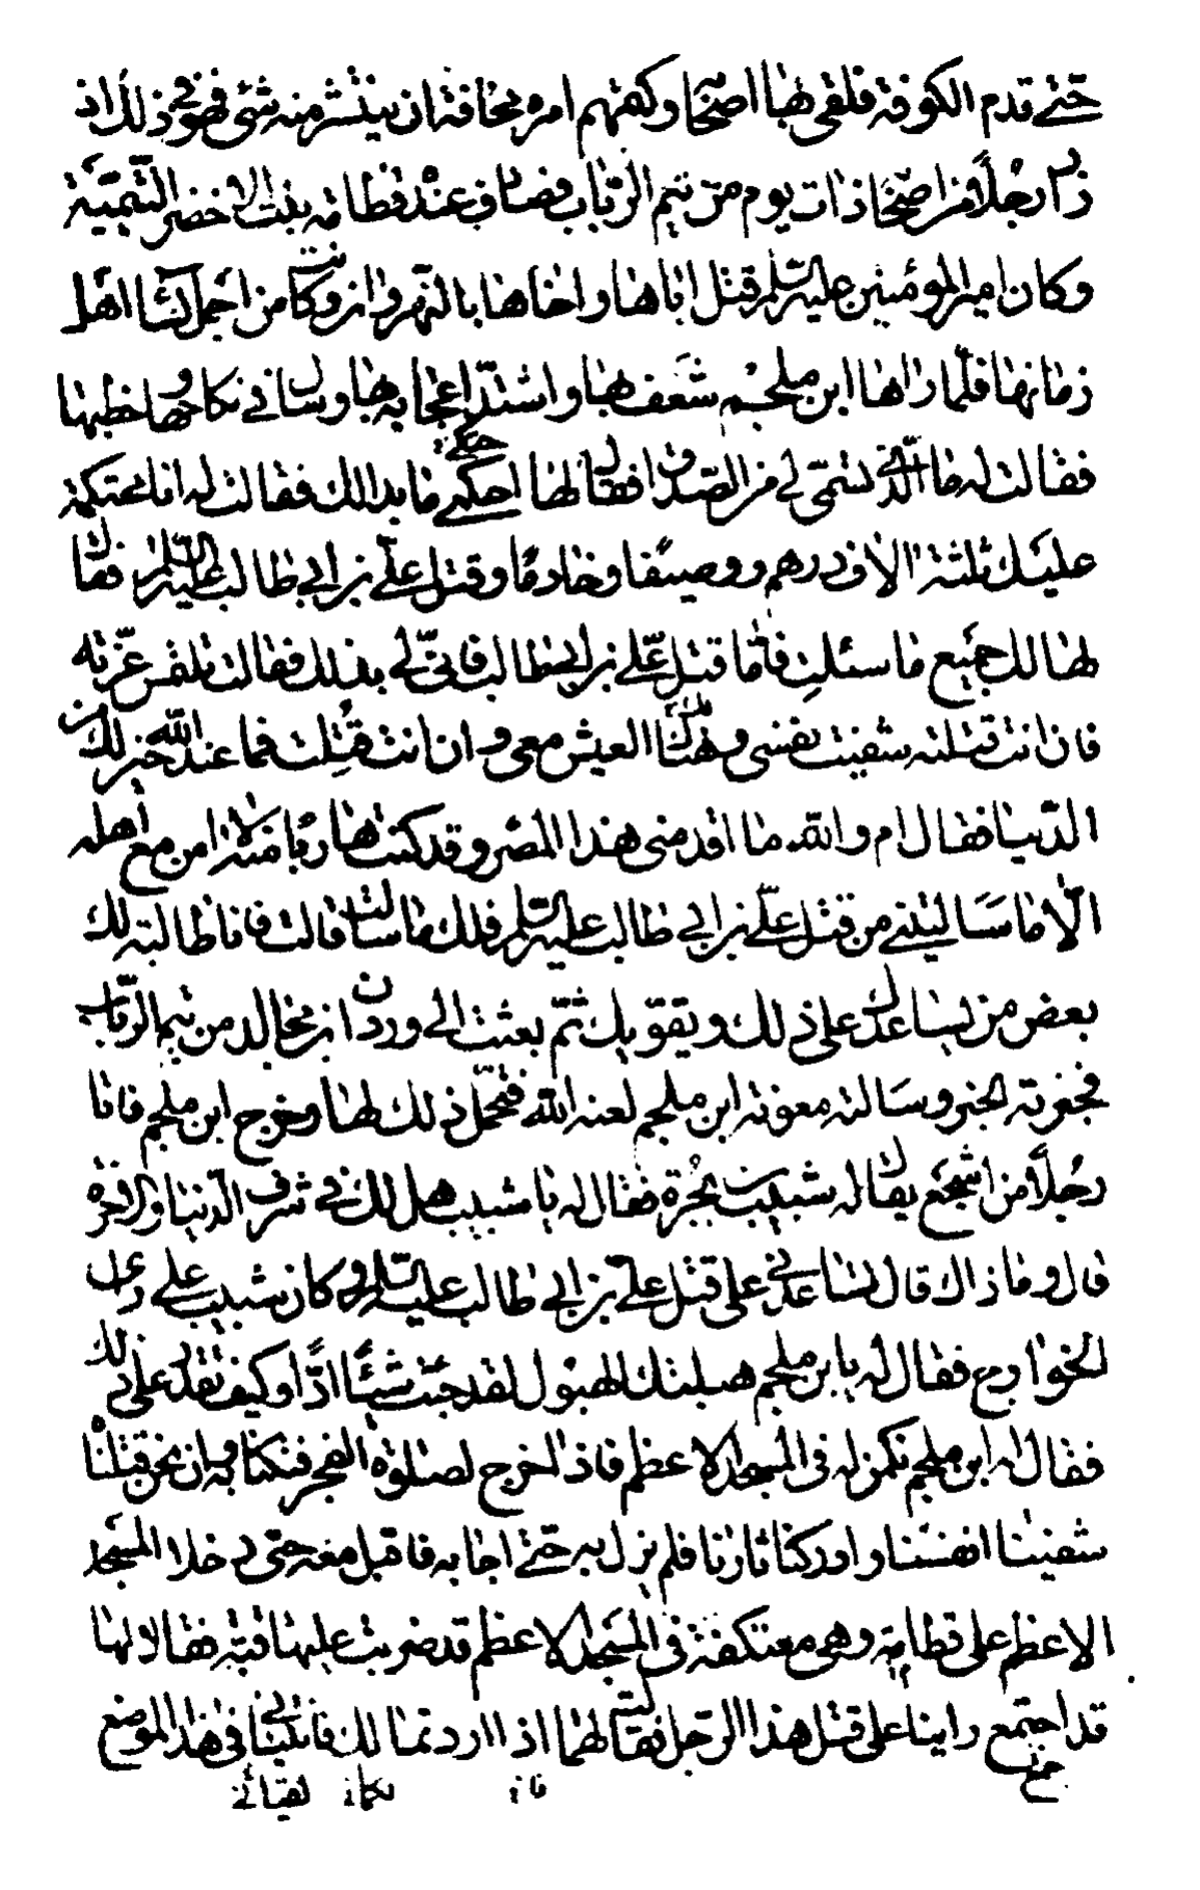 حتى قدم الكوفة فلقى بها اصحابه وكتمهم امره مخافة ان ينتشر منه شئ فهو فى ذلك اذ
زار رجلاً من اصحابه ذات يوم من تيم الرّباب فصادف عنده قطامة بنت الاخضر التّيميّة
وكان امير المؤمنين عليه السّلم قتل اباها واخاها بالنّهروان وكانت من اجمل نساء اهل
زمانها فلمّا راها ابن ملجم شغف بها واشتدّ اعجابه بها وسال فى نكاحها وخطبها
فقالت له ما الّذى تسمّى لى من الصّداق فقال لها احتكمى ما بدا لك فقالت له انا محتكمة
عليك ثلثة الاف درهم ووصيفا وخادمًا وقتل علىّ بن ابى طالب عليه السّلم فقال
لها لك جميع ما سئلتِ فامّا قتل علىّ بن ابى طالب فانّى لى بذلك فقالت تلتمس غرّته
فان انت قتلته شفيت نفسى وهنّاك العيش معى وان انت قُتِلت فما عند الله خير لك من
الدّنيا فقال ام والله ما اقدمنى هذا المصر وقد كنت هاربًا منه لا امن مع اهله
الّا ما سَالتِنى من قتل علىّ بن ابى طالب عليه السّلم فلك ما سالت قالت فانا طالبة لك
بعض من يساعدك على ذلك ويقوّيك ثمّ بعثت الى وردان بن مجالد من تيم الرّباب
فخبرته الخبر وسَالته معونة ابن ملجم لعنه الله فتحمّل ذلك لها وخرج ابن ملجم فاتا
رجُلاً من اشجع يقال له شبيب بن بُجْرة فقال له يا شبيب هل لك فى شرف الدّنيا والاخرة
قال وما ذاك قال تساعدنى على قتل علىّ بن ابى طالب عليه السّلم وكان شبيب على راى
الخوارج فقال له يابن ملجم هبلتك الهبول لقد جئت شيئًا ادًّا وكيف تقدر على ذلك
فقال له ابن ملجم نكمن له فى المسجد الاعظم فاذا خرج لصلوة الفجر فتكنا به وان نحن قتلناه
شفينا انفسنا وادركنا ثارنا فلم يزل به حتّى اجابه فاقبل معه حتى دخلا المسجد
الاعظم على قطامة وهى معتكفة فى المسجد الاعظم قد ضربت عليها قبّة فقالا لها
قد اجتمع راينا على قتل هذا الرّجل فقالت لهما اذا اردتما ذلك فاتيانى فى هذا الموضع